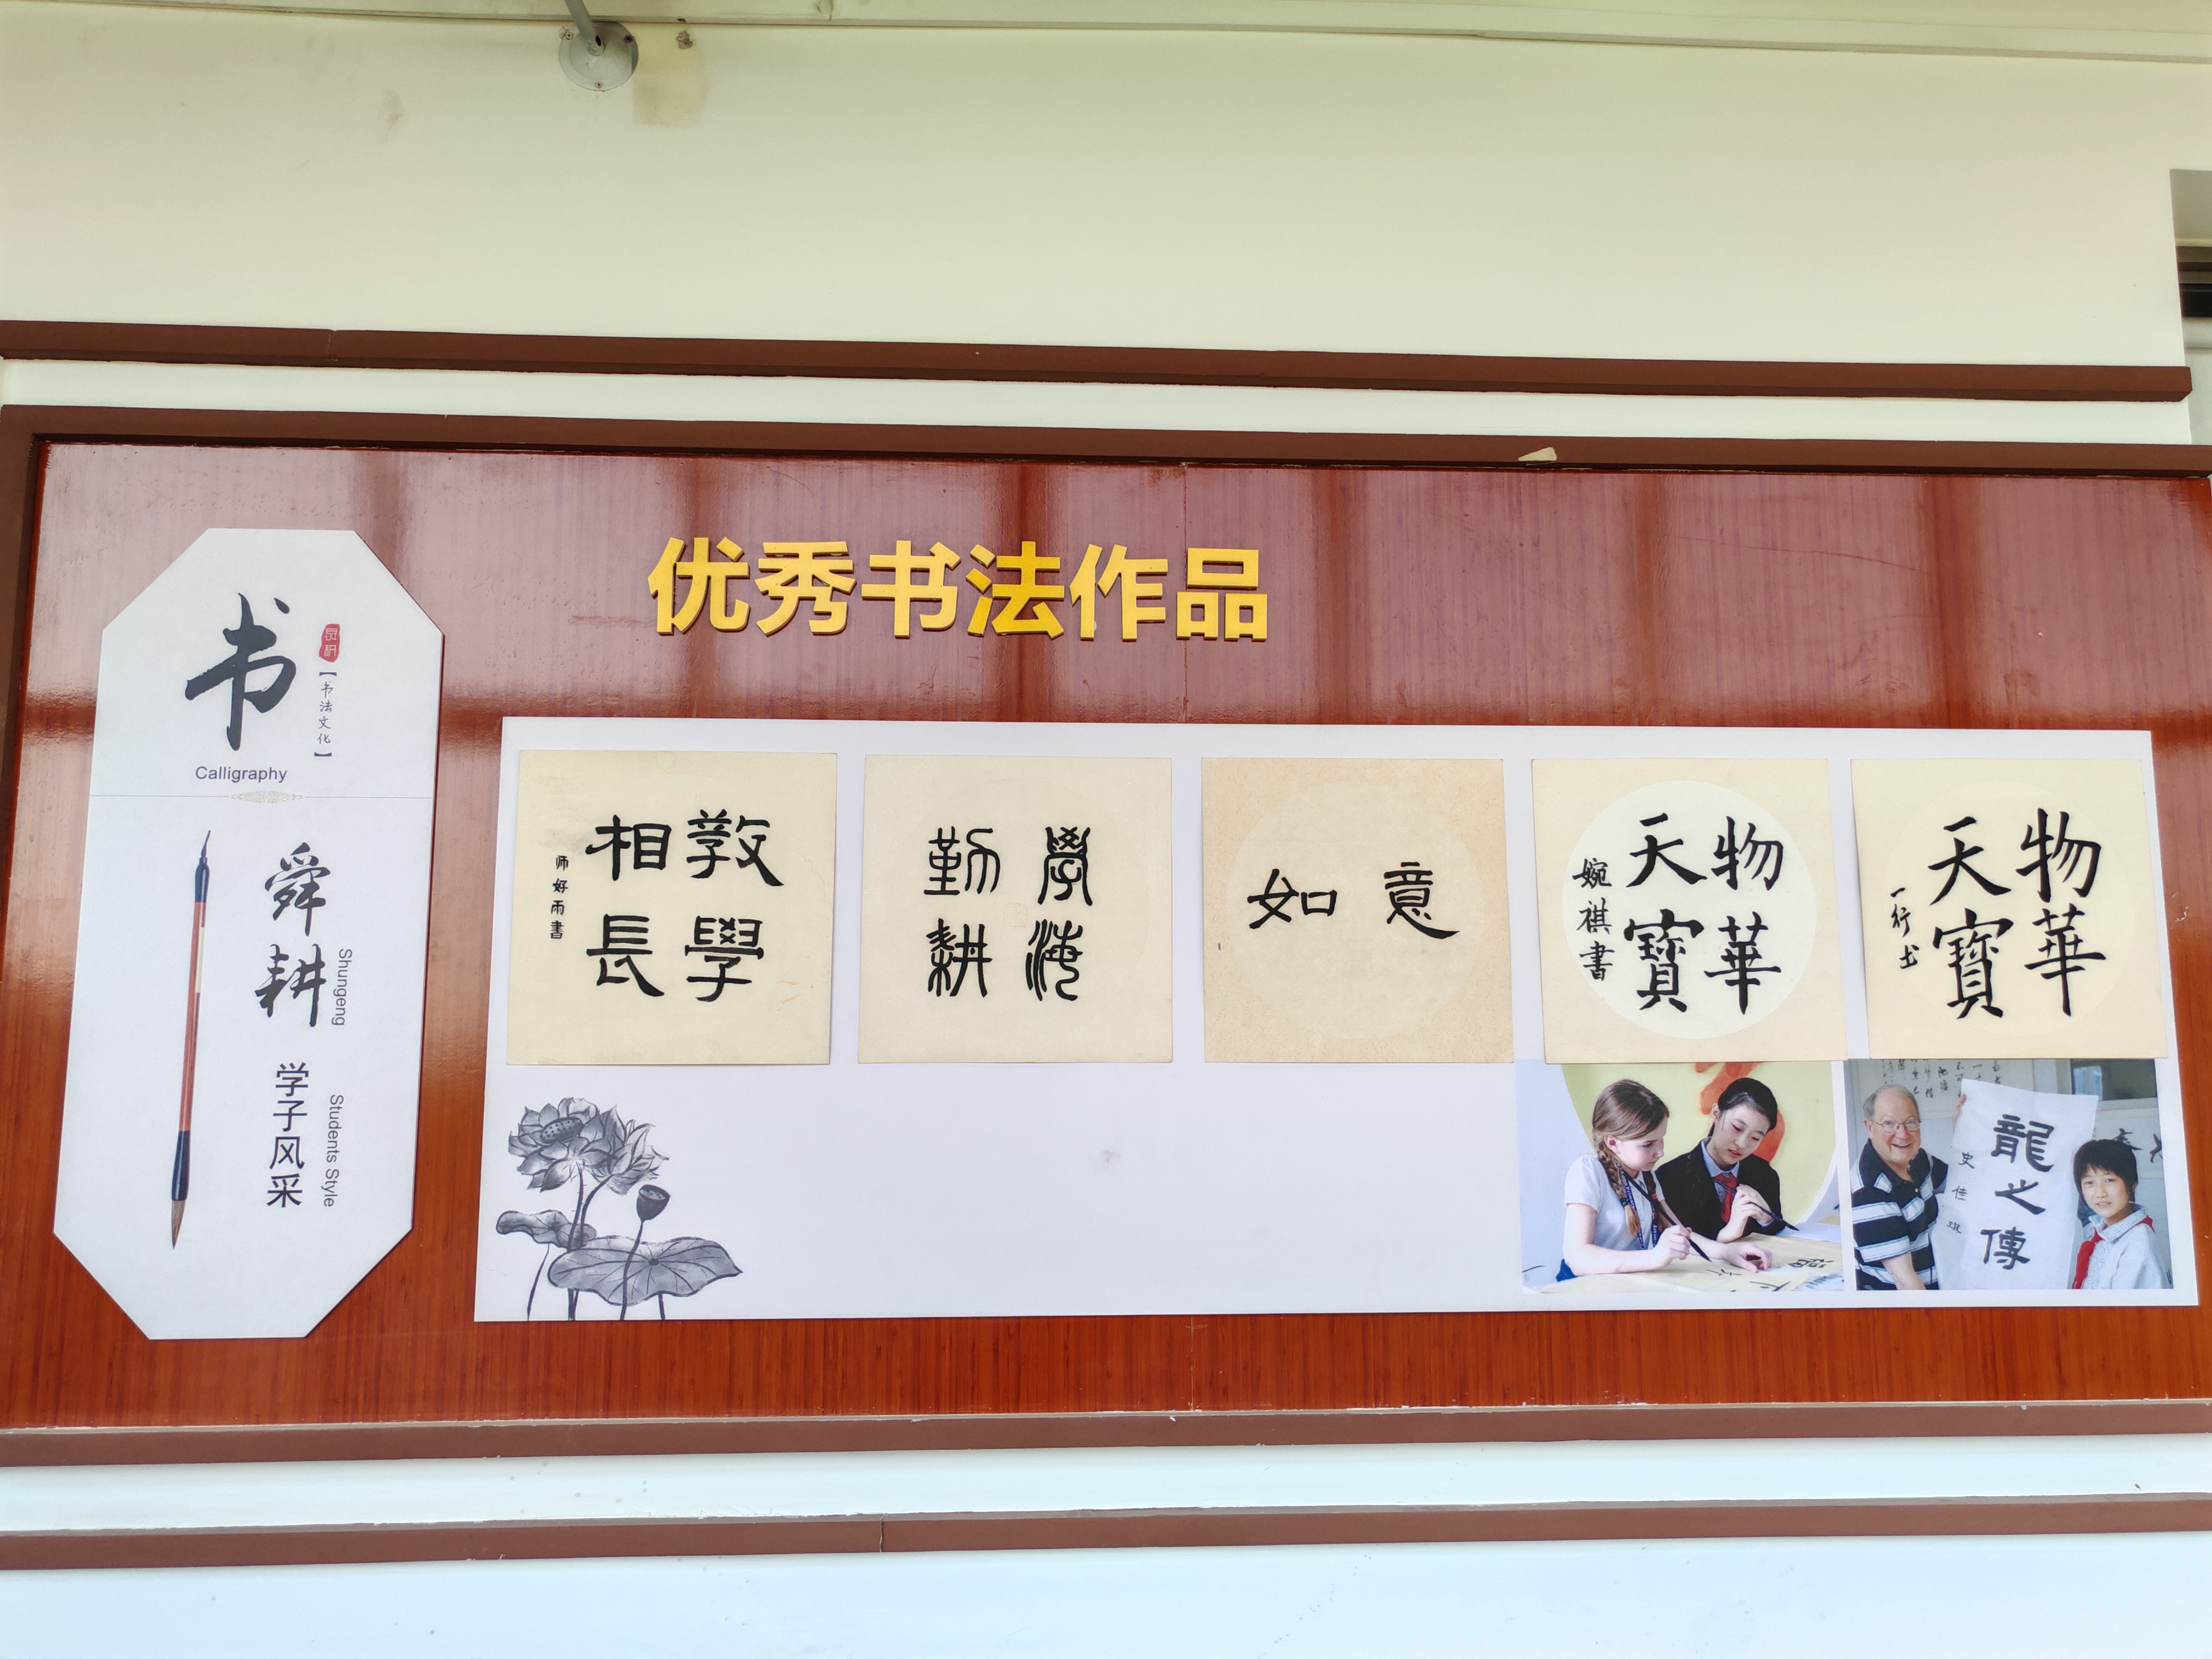 优秀书法作品
书
【书法文化】
Calligraphy
舜耕
Shungeng
学子风采
Students Style
教學
相長
师好雨書
學海
勤耕
意如
物華
天寶
婉祺書
物華
天寶
一行书
龍之傳
史佳琪